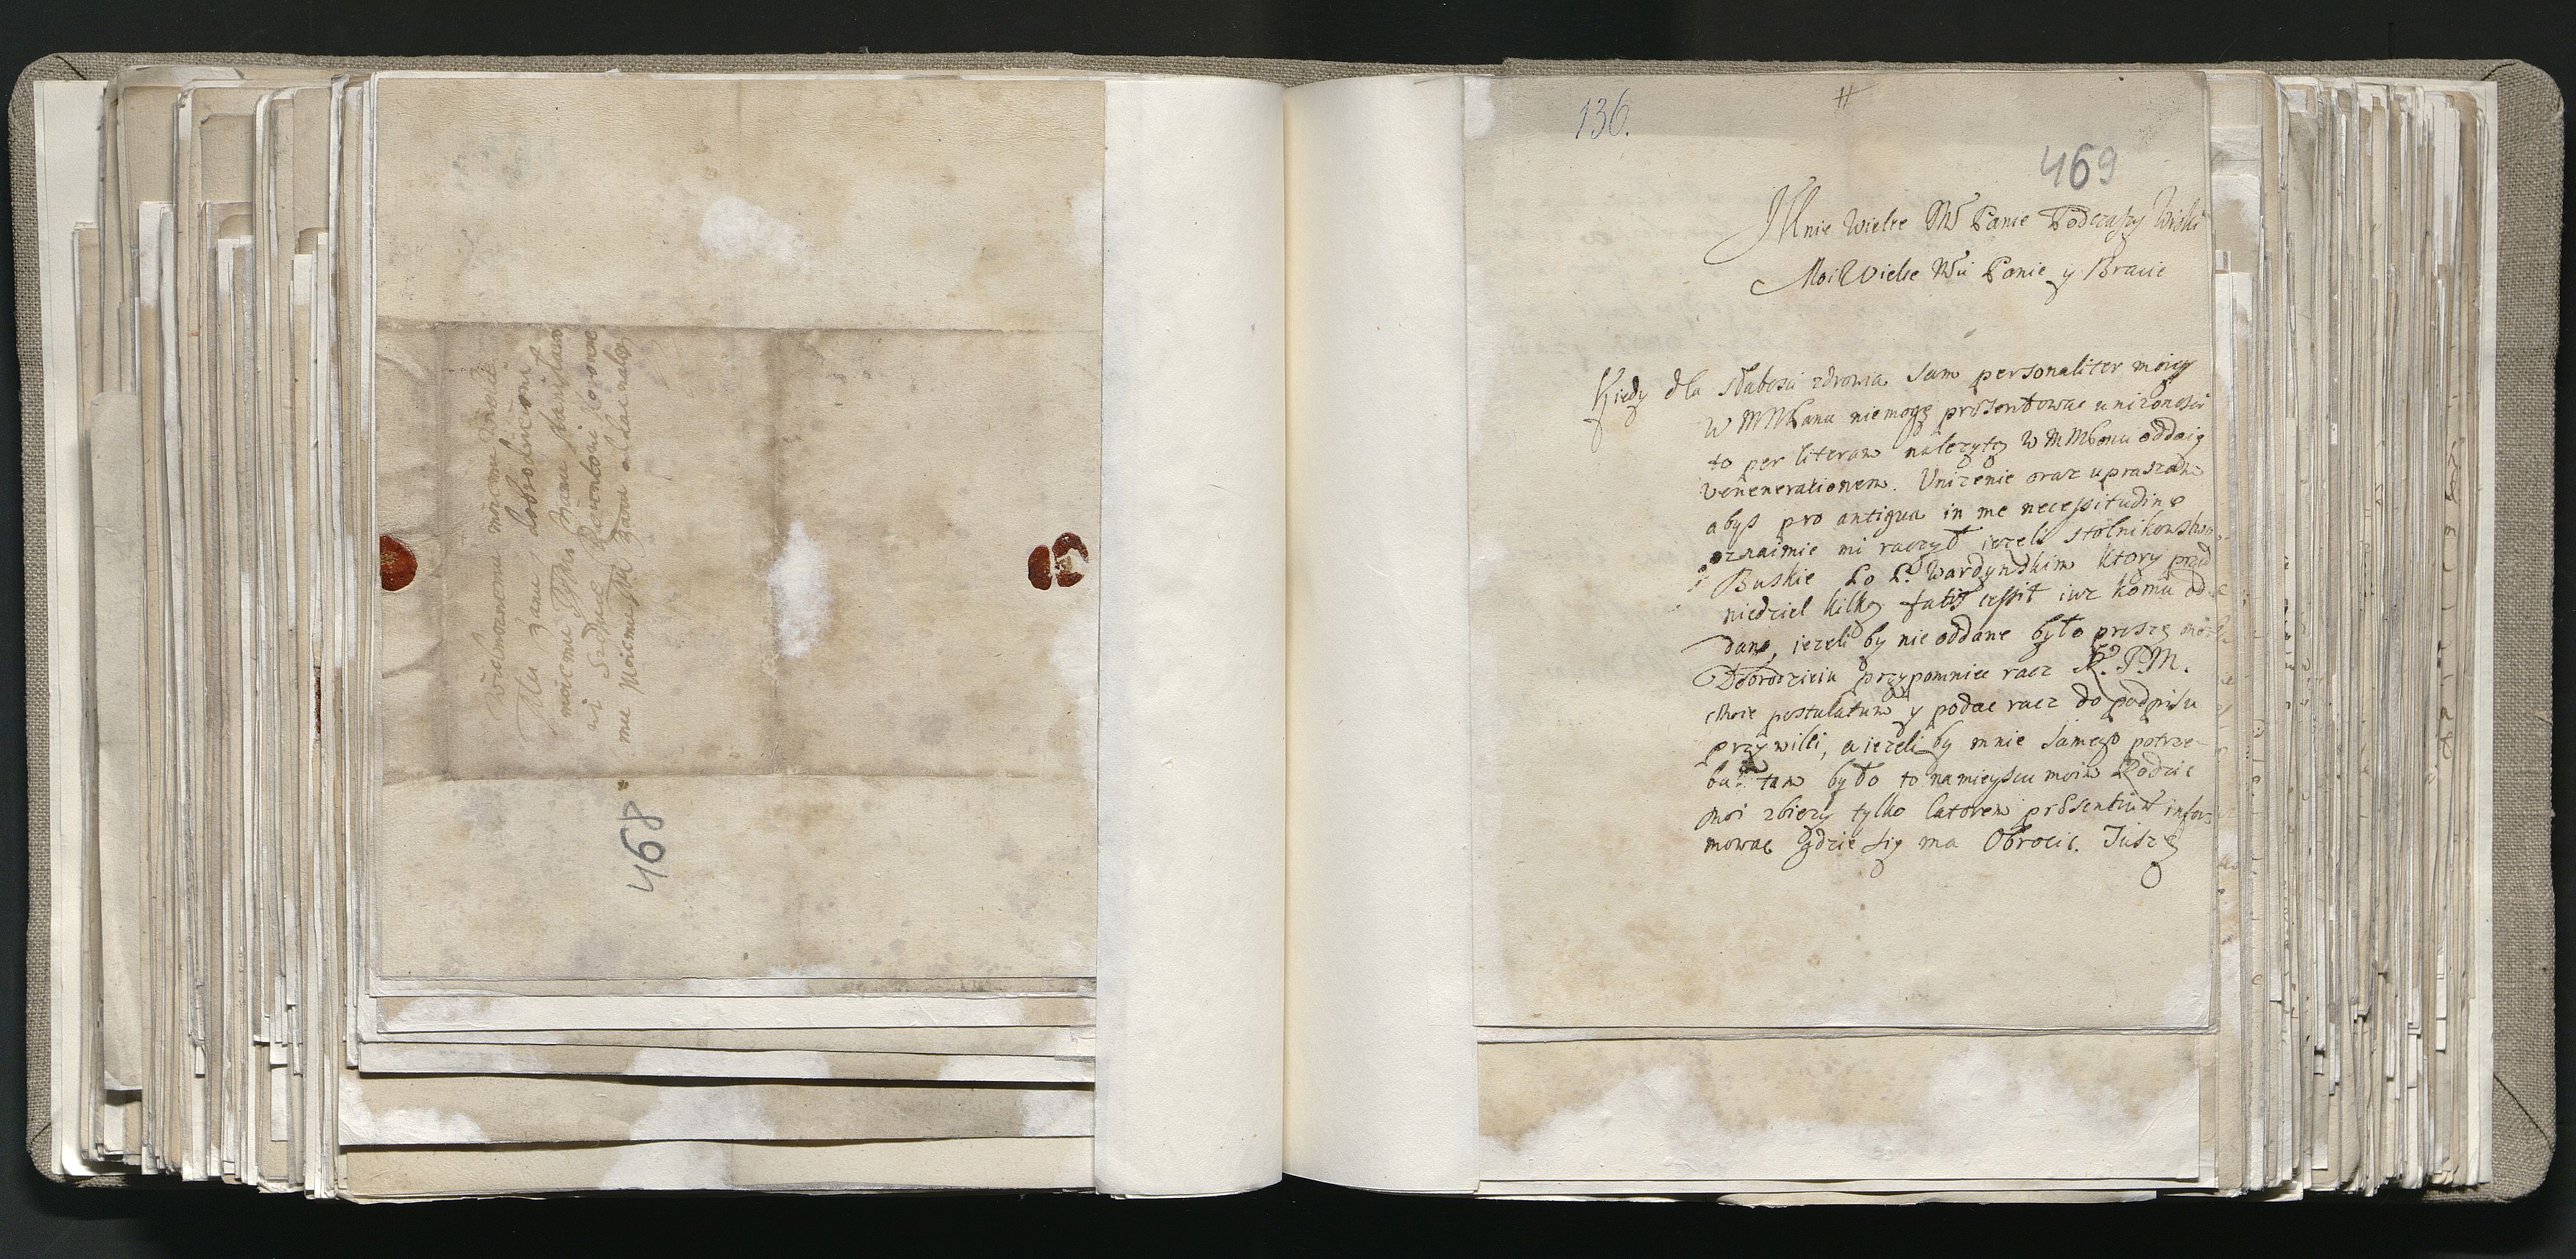 Wielmoznemu memu Wielce
Mu Panu y dobrodzieiowi
moiemu Jego Panu Stanislaw
mu Moiemu Panu oddac nalezy
468
136.
469
Mnie Wielce MW Panie Podczaszy Wiski
Moi Wielce Mci Panie y Bracie
Kiedy dla słabosci zdrowia sam personaliter moiey
W MMPanu niemogę presentowac unizonosci
to per literam nalezytą W MMPanu oddaię
venenerationem. Unizenie oraz upraszam
abys pro antiqua in me necessitudine
oznaimic mi raczył iezeli stolnikowstwo
Buskie Po P. Wardynskim ktory przed
niedziel kilką fatis cessit iuz komu od
dano, iezeli by nie oddane było proszę
Dobrodzieiu przypomniec racz K.J.M.
moie postulatum y podac racz do podpisu
przywilli, a iezeli by mnie samego potrze-
ba tam było to namieyscu moim Rodzic
moi zbiezy tylko latorem presentium infor
mowac gdzie się ma Obrocic. Tuszę